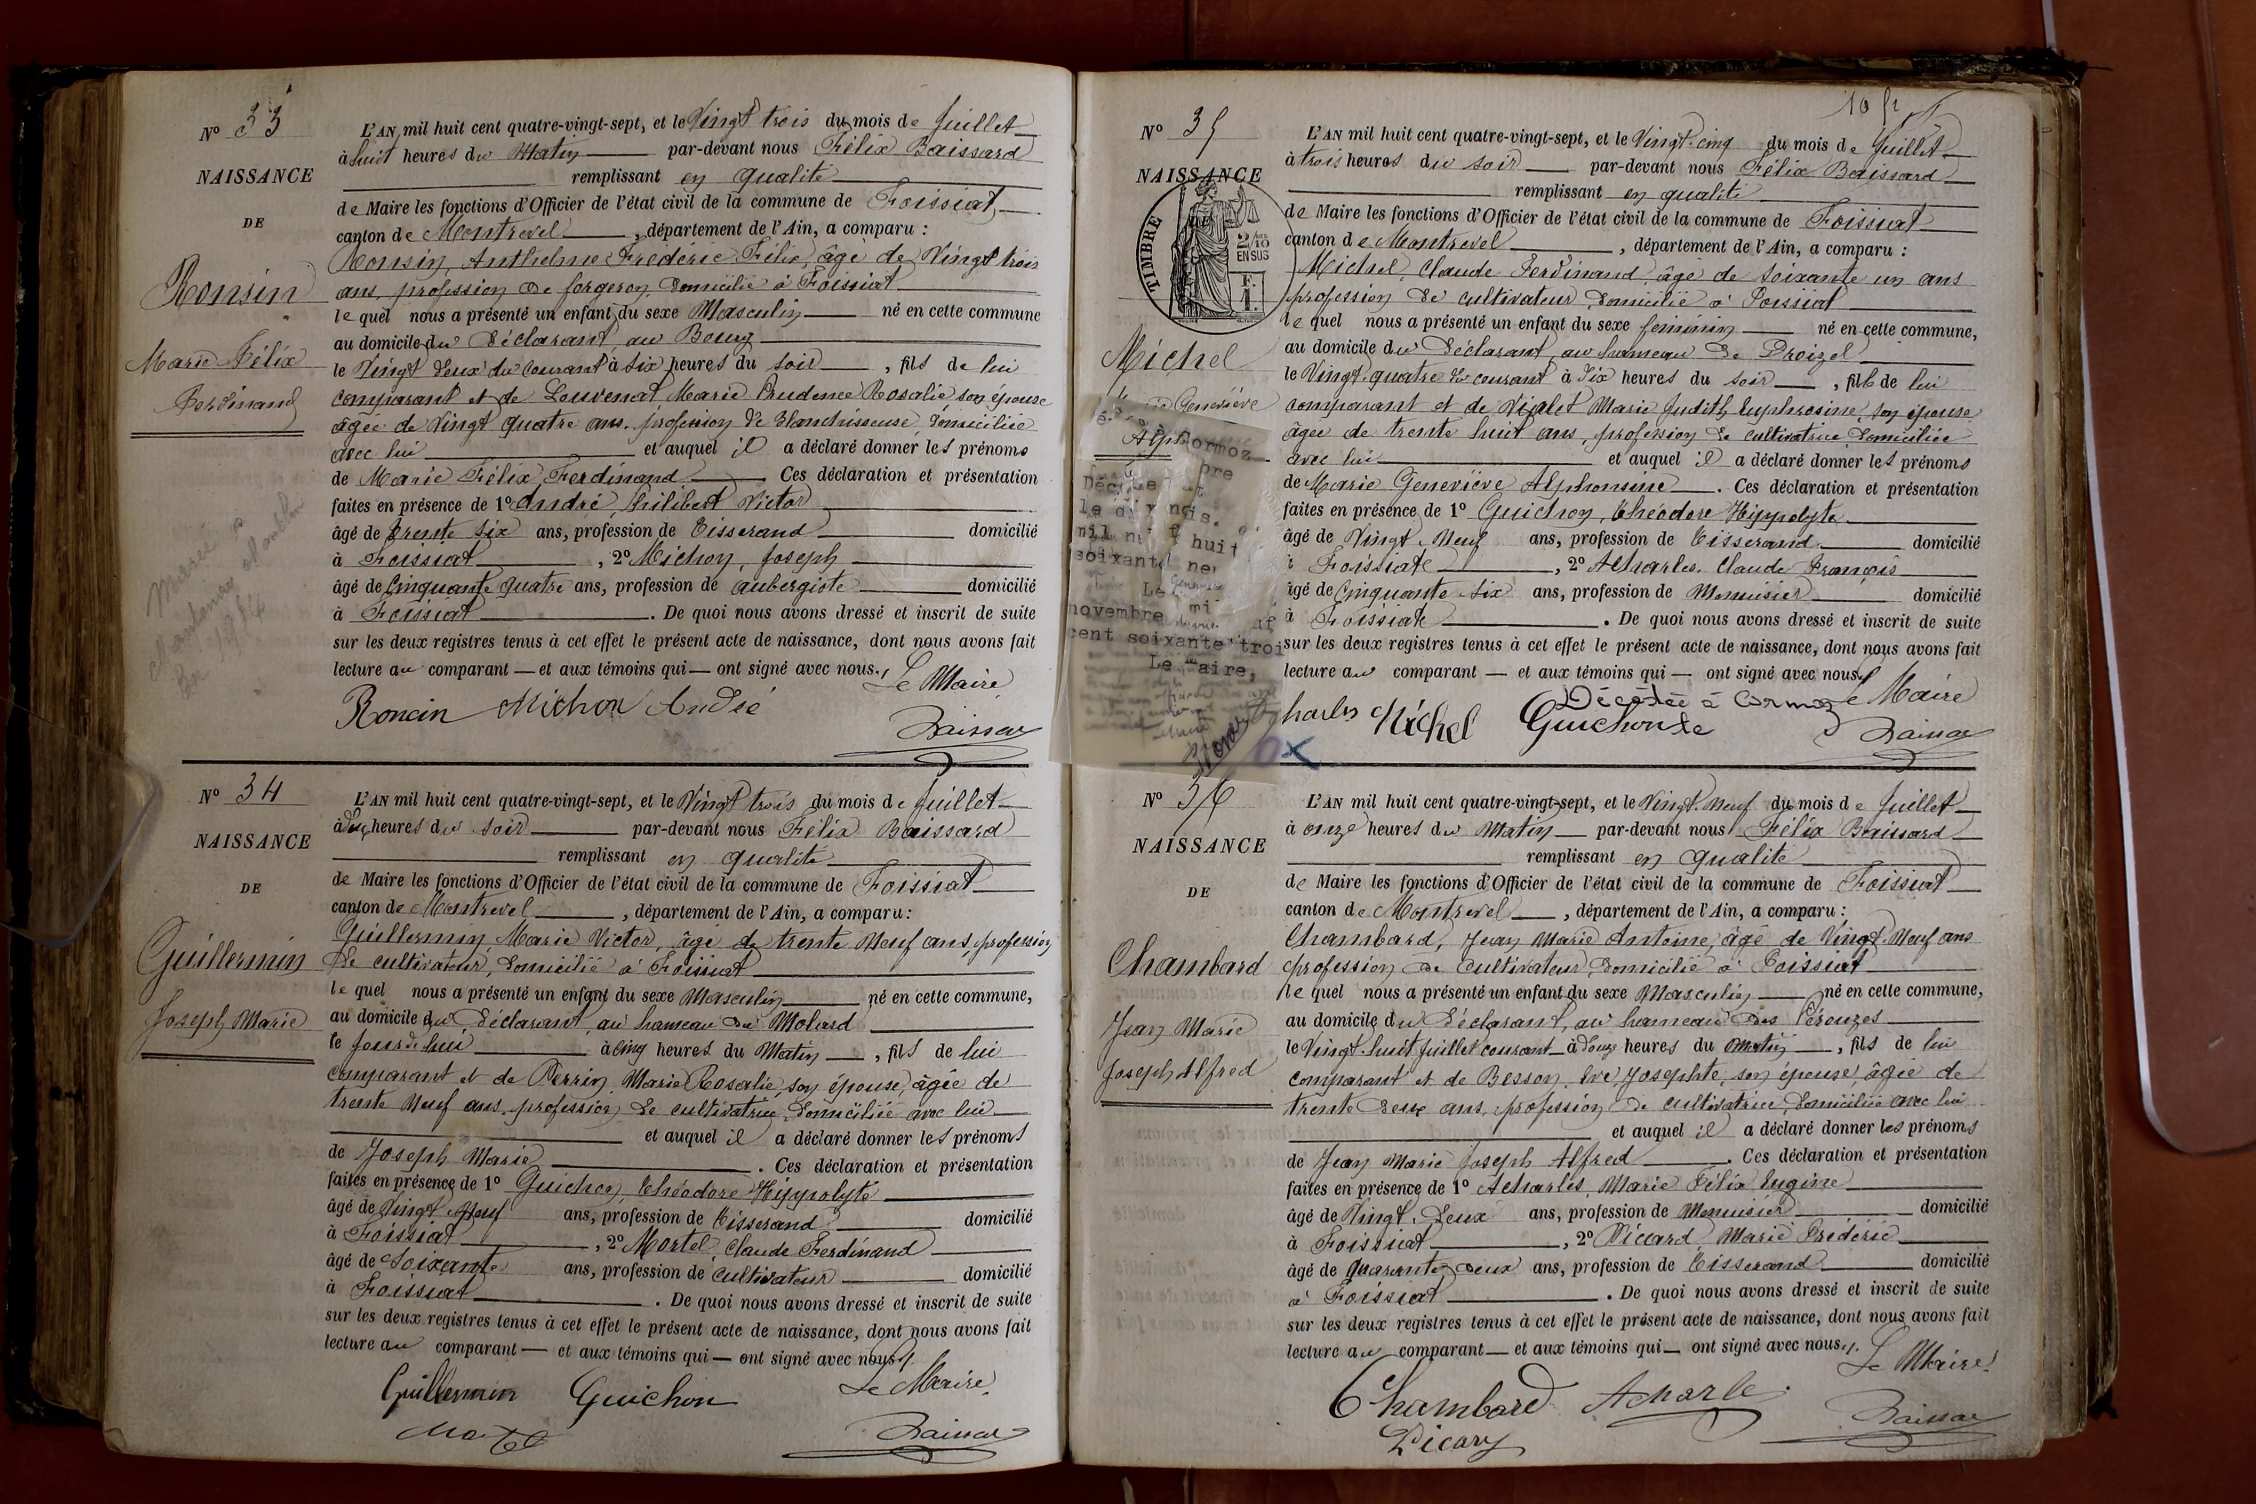 N° 33
NAISSANCE
DE
Ronsin
Marie Félix
Ferdinand
Marié à
en 1914
L'AN mil huit cent quatre-vingt-sept, et le Vingt trois du mois de Juillet
à huit heures du Matin par-devant nous Félix Baissard
remplissant en qualité
de Maire les fonctions d'Officier de l'état civil de la commune de Foissiat
canton de Montrevel, département de l'Ain, a comparu :
Ronsin, Anthelme Frédéric Félix, âgé de Vingt trois
ans, profession de forgeron, domicilié à Foissiat
lequel nous a présenté un enfant du sexe Masculin né en cette commune
au domicile du déclarant, au Bourg
le Vingt deux du courant à six heures du soir, fils de lui
comparant et de Louvenat Marie Prudence Rosalie son épouse
âgée de Vingt quatre ans, profession de blanchisseuse, domiciliée
avec lui et auquel il a déclaré donner les prénoms
de Marie Félix Ferdinand. Ces déclaration et présentation
faites en présence de 1° André, Philibert Victor
âgé de trente six ans, profession de Tisserand domicilié
à Foissiat, 2° Michon, Joseph
âgé de Cinquante quatre ans, profession de aubergiste domicilié
à Foissiat. De quoi nous avons dressé et inscrit de suite
sur les deux registres tenus à cet effet le présent acte de naissance, dont nous avons fait
lecture au comparant et aux témoins qui ont signé avec nous.
Le Maire
Roncin Michon André
Baissar
N° 34
NAISSANCE
DE
Guillermin
Joseph Marie
L'AN mil huit cent quatre-vingt-sept, et le Vingt trois du mois de Juillet
à heures du soir par-devant nous Félix Baissard
remplissant en qualité
de Maire les fonctions d'Officier de l'état civil de la commune de Foissiat
canton de Montrevel, département de l'Ain, a comparu :
Guillermin, Marie Victor, âgé de trente Neuf ans, profession
de cultivateur, domicilié à Foissiat
lequel nous a présenté un enfant du sexe Masculin né en cette commune,
au domicile du déclarant, au hameau du Molard
le jourd'hui à cinq heures du Matin, fils de lui
comparant et de Perrin, Marie Rosalie, son épouse, âgée de
trente Neuf ans, profession de cultivatrice, domiciliée avec lui
et auquel il a déclaré donner les prénoms
de Joseph Marie. Ces déclaration et présentation
faites en présence de 1° Guichon, Théodore Hippolyte
âgé de Vingt Neuf ans, profession de Tisserand domicilié
à Foissiat, 2° Mortel, Claude Ferdinand
âgé de Soixante ans, profession de cultivateur domicilié
à Foissiat. De quoi nous avons dressé et inscrit de suite
sur les deux registres tenus à cet effet le présent acte de naissance, dont nous avons fait
lecture au comparant et aux témoins qui ont signé avec nous.
Le Maire
Guillermin Guichon
Baissar
10 fr
N° 35
NAISSANCE
TIMBRE
2/10
EN SUS
Michel
Geneviève
Cormoz
novembre
cent soixante troi
Le Maire,
L'AN mil huit cent quatre-vingt-sept, et le Vingt-cinq du mois de Juillet
à trois heures du soir par-devant nous Félix Baissard
remplissant en qualité
de Maire les fonctions d'Officier de l'état civil de la commune de Foissiat
canton de Montrevel, département de l'Ain, a comparu :
Michel, Claude Ferdinand, âgé de soixante un ans
profession de cultivateur, domicilié à Foissiat
lequel nous a présenté un enfant du sexe féminin né en cette commune,
au domicile du déclarant, au hameau de Droizel
le Vingt-quatre du courant à six heures du soir, fille de lui
comparant et de Violet Marie Judith Euphrosine, son épouse
âgée de trente huit ans, profession de cultivatrice, domiciliée
avec lui et auquel il a déclaré donner les prénoms
de Marie Geneviève Alphonsine. Ces déclaration et présentation
faites en présence de 1° Guichon, Théodore Hippolyte
âgé de Vingt Neuf ans, profession de Tisserand domicilié
à Foissiate, 2° Acharles, Claude François
âgé de Cinquante six ans, profession de Menuisier domicilié
à Foissiate. De quoi nous avons dressé et inscrit de suite
sur les deux registres tenus à cet effet le présent acte de naissance, dont nous avons fait
lecture au comparant et aux témoins qui ont signé avec nous
Décédée à Cormoz Le Maire
charles Michel Guichon
Baissar
N° 36
NAISSANCE
DE
Chambard
Jean Marie
Joseph Alfred
L'AN mil huit cent quatre-vingt-sept, et le Vingt-Neuf du mois de Juillet
à onze heures du Matin par-devant nous Félix Baissard
remplissant en qualité
de Maire les fonctions d'Officier de l'état civil de la commune de Foissiat
canton de Montrevel, département de l'Ain, a comparu :
Chambard, Jean Marie Antoine, âgé de Vingt-Neuf ans
profession de cultivateur, domicilié à Foissiat
lequel nous a présenté un enfant du sexe Masculin né en cette commune,
au domicile du déclarant, au hameau des Pérouzes
le Vingt-huit Juillet courant à douze heures du Matin, fils de lui
comparant et de Besson, Eve Josephte, son épouse, âgée de
trente deux ans, profession de cultivatrice, domiciliée avec lui
et auquel il a déclaré donner les prénoms
de Jean Marie Joseph Alfred. Ces déclaration et présentation
faites en présence de 1° Acharles, Marie Félix Eugène
âgé de Vingt-Deux ans, profession de Menuisier domicilié
à Foissiat, 2° Piccard, Marie Frédéric
âgé de Quarante Deux ans, profession de Tisserand domicilié
à Foissiat. De quoi nous avons dressé et inscrit de suite
sur les deux registres tenus à cet effet le présent acte de naissance, dont nous avons fait
lecture au comparant et aux témoins qui ont signé avec nous.
Le Maire
Chambard Acharle
Baissar
Picary